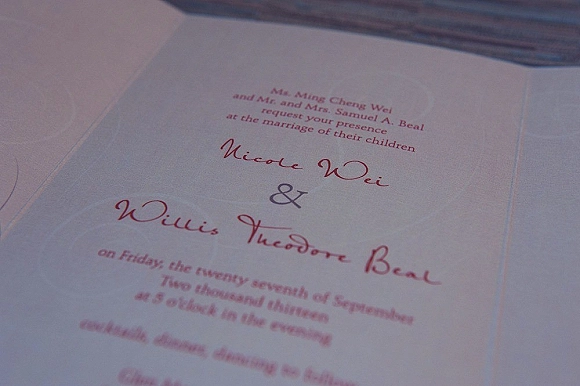 Ms. Ming Cheng Wei
and Mr. and Mrs. Samuel A. Beal
request your presence
at the marriage of their children
Nicole Wei
&
Willis Theodore Beal
on Friday, the twenty seventh of September
Two thousand thirteen
at 5 o'clock in the evening
cocktails, dinner, dancing to follow
Glen